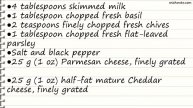 wikihandv.com
•4 tablespoons skimmed milk
•1 tablespoon chopped fresh basil
•2 teaspoons finely chopped fresh chives
•1 tablespoon chopped fresh flat-leaved
parsley
•Salt and black pepper
•25 g (1 oz) Parmesan cheese, finely grated
•25 g (1 oz) half-fat mature Cheddar
cheese, finely grated